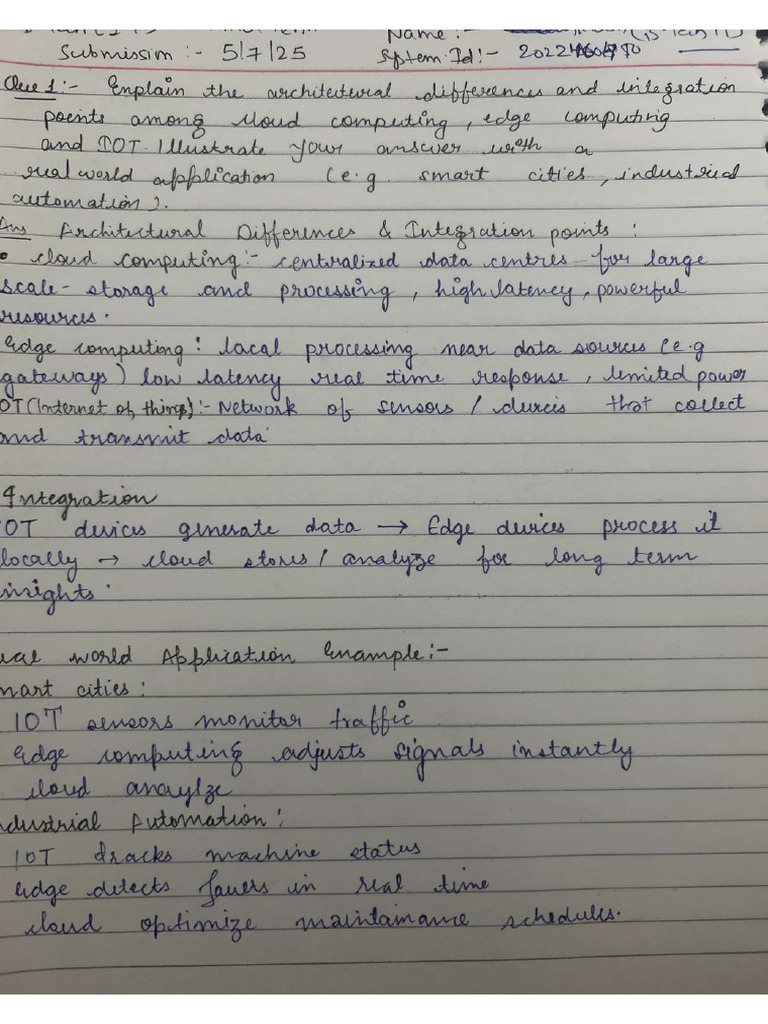 Name :-
Submission :- 5/7/25 System Id :-
Que 1 :- Explain the architectural differences and integration
points among cloud computing, edge computing
and IOT. Illustrate your answer with a
real world application (e.g. smart cities, industrial
automation).
Ans Architectural Differences & Integration points :
• cloud computing :- centralized data centres for large
scale - storage and processing, high latency, powerful
resources.
Edge computing : local processing near data sources (e.g
gateways) low latency real time response, limited power
OT (Internet of things) :- Network of sensors / devices that collect
and transmit data.
Integration
OT devices generate data → Edge devices process it
locally → cloud stores / analyze for long term
insights.
world Application Example :-
mart cities :
IOT sensors monitor traffic
Edge computing adjusts signals instantly
cloud anaylze
ndustrial Automation :
IOT tracks machine status
Edge detects in real time
cloud optimize maintainance schedules.